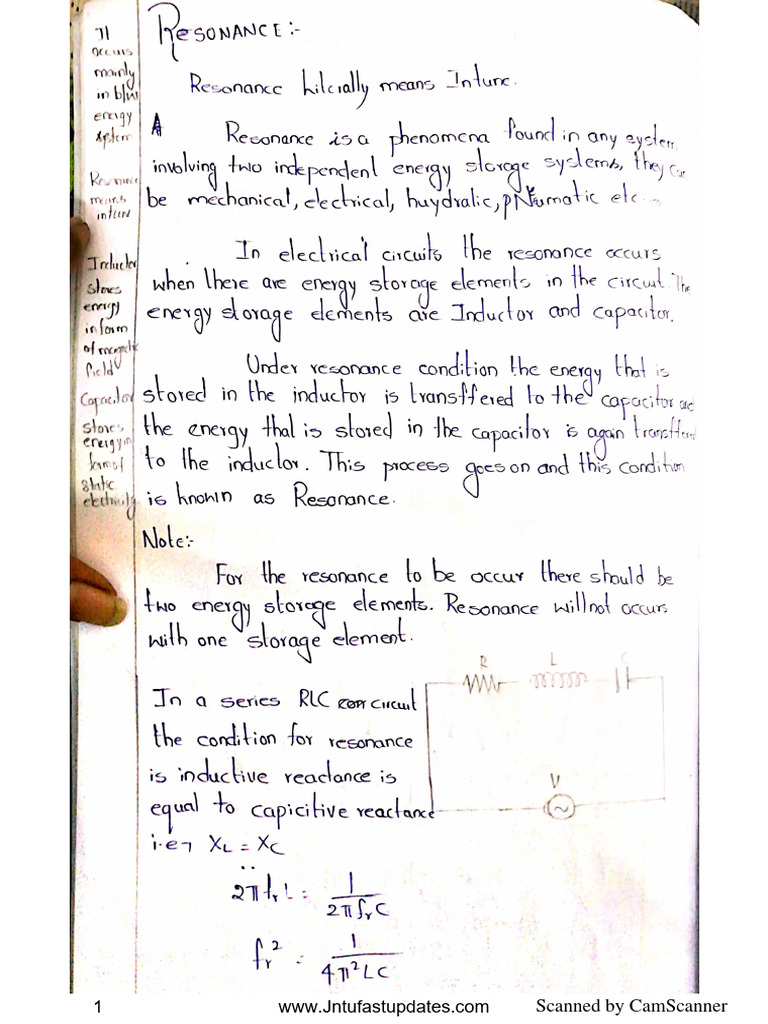 RESONANCE:-
Resonance litcially means Intune.
A Resonance is a phenomena found in any system
involving two independent energy storage systems, they can
be mechanical, electrical, huydralic, pNeumatic etc....
In electrical circuits the resonance occurs
when there are energy storage elements in the circuit. The
energy storage elements are Inductor and capacitor.
Under resonance condition the energy that is
stored in the inductor is transffered to the capacitor and
the energy that is stored in the capacitor is again transffered
to the inductor. This process goes on and this condition
is known as Resonance.
Note:-
For the resonance to be occur there should be
two energy storage elements. Resonance will not occurs
with one storage element.
In a series RLC circuit
the condition for resonance
is inductive reactance is
equal to capicitive reactance
i.e, XL = XC
2π fr L = 1 / 2π fr C
fr² = 1 / 4π² LC
R L C
V
It
occurs
mainly
in b/w
energy
system
Resonance
means
intune
Inductor
stores
energy
in form
of magnetic
field
Capacitor
stores
energy in
form of
static
electricity
1 www.Jntufastupdates.com Scanned by CamScanner